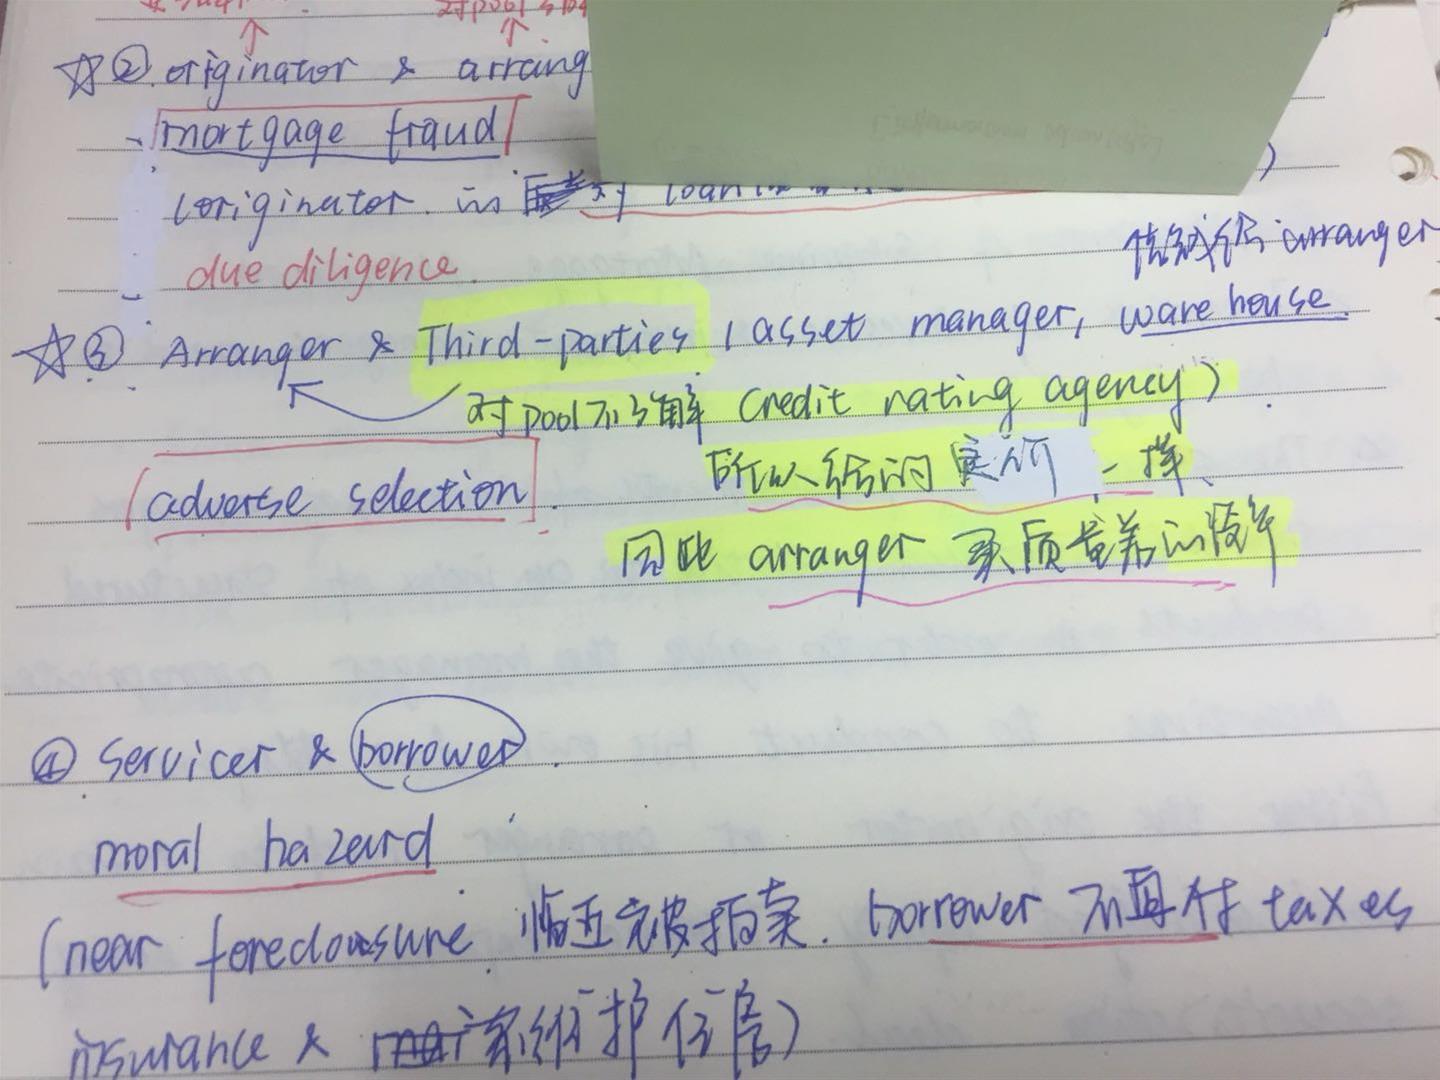 ☆② originator & arrang
- mortgage fraud
(originator 的 对 loan
due diligence.
给 arranger
☆③ Arranger & Third-parties (asset manager, warehouse
对pool不了解 credit rating agency)
(adverse selection
所以给的定价一样、
因此 arranger 买质量差的债券
④ Servicer & borrower.
moral hazard
(near foreclosure. 临近 borrower 不再付 taxes
insurance & 维护住房)